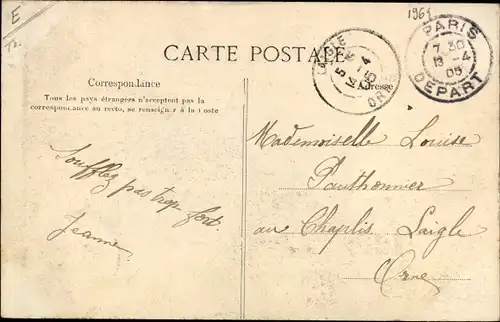 E
1961
CARTE POSTALE
Correspondance
Tous les pays étrangers n'acceptent pas la
correspondance au recto, se renseigner à la poste
Adresse
LAIGLE
5 4
05
ORNE
PARIS
7 30
13 -4
05
DEPART
Soufflez pas trop fort.
Jeanne
Mademoiselle Louise
Pauthonnier
au Chaplis Laigle
Orne